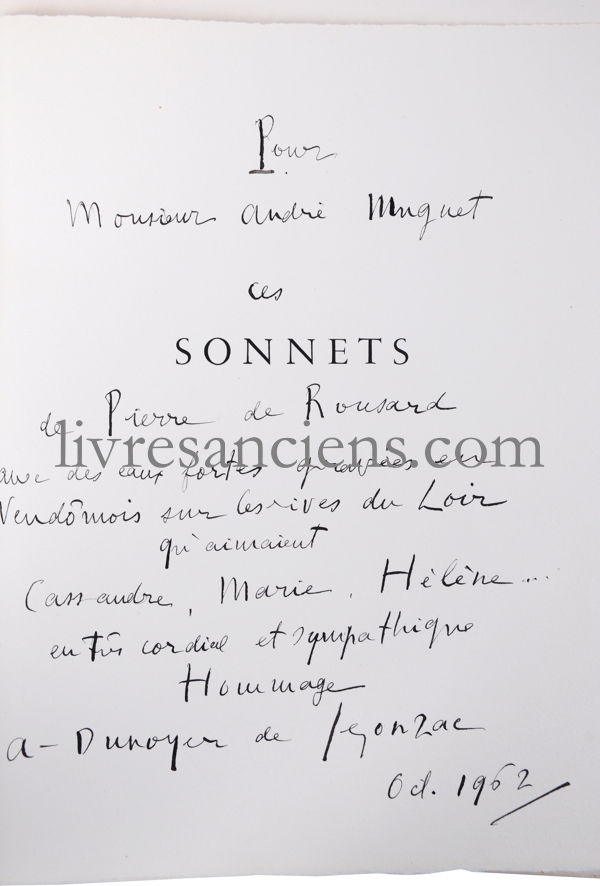 Pour
Monsieur André Muguet
ces
SONNETS
de Pierre de Ronsard
livresanciens.com
avec des eaux fortes gravées en
Vendômois sur les rives du Loir
qu'aimaient
Cassandre, Marie, Hélène...
en très cordial et sympathique
Hommage
A - Dunoyer de Segonzac
Oct. 1962